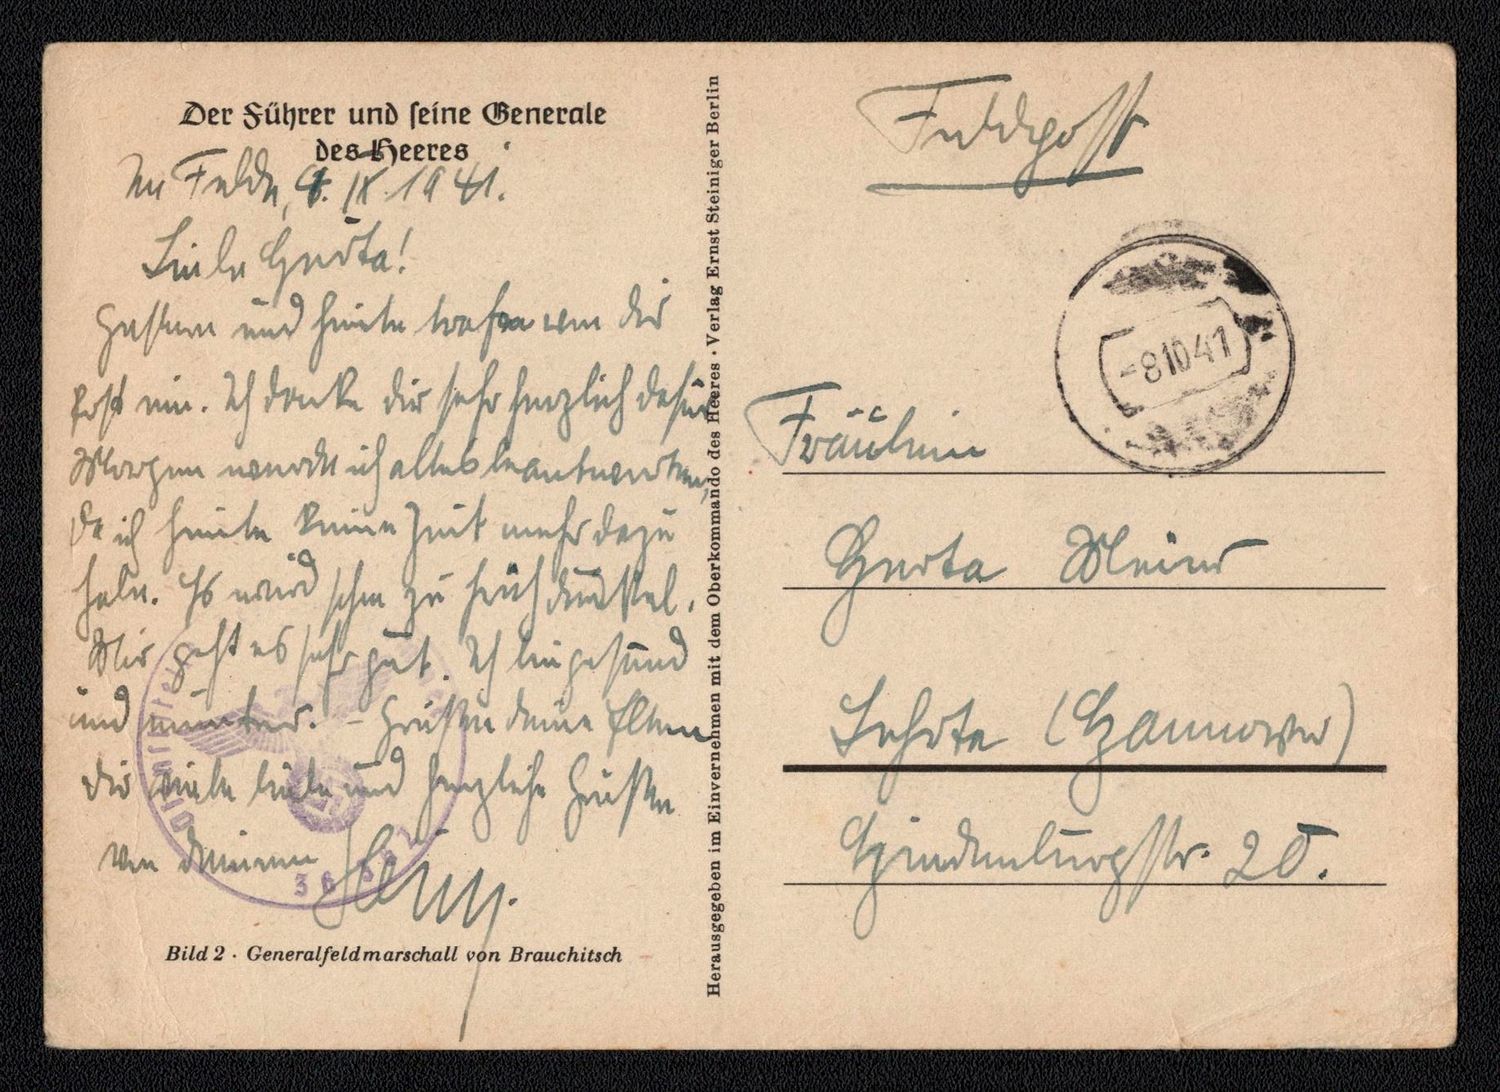 Der Führer und seine Generale
des Heeres
Im Felde, IX. 1941.
Liebe Gerda!
Gestern und heute trafen von dir
Post ein. Ich danke dir sehr herzlich dafür
Morgen werde ich alles beantworten,
da ich heute keine Zeit mehr dazu
habe. Es wird schon zu früh dunkel.
Mir geht es sehr gut. Ich bin gesund
und munter. – Grüße deine Eltern
Dir viele liebe und herzliche Grüße
von deinem
Dienststelle
36
Bild 2 · Generalfeldmarschall von Brauchitsch
Herausgegeben im Einvernehmen mit dem Oberkommando des Heeres · Verlag Ernst Steiniger Berlin
Feldpost
-8.10.41
Fräulein
Gerda Meier
Lehrte (Hannover)
Hindenburgstr. 20.